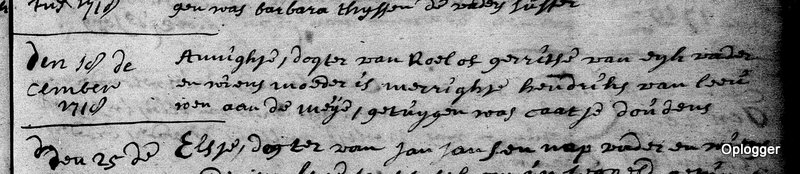 1718
gen was barbara thijssen de vaders suster
den 18 de
cember
1718
Annighje, dogter van Roelof gerritse van eyk vader
en wiens moeder is merrighje hendriks van leeu
wen aan de meye, getuygen was aaltje
den 25 de
Elsje, dogter van Jan Jansen nap vader en
Oplogger